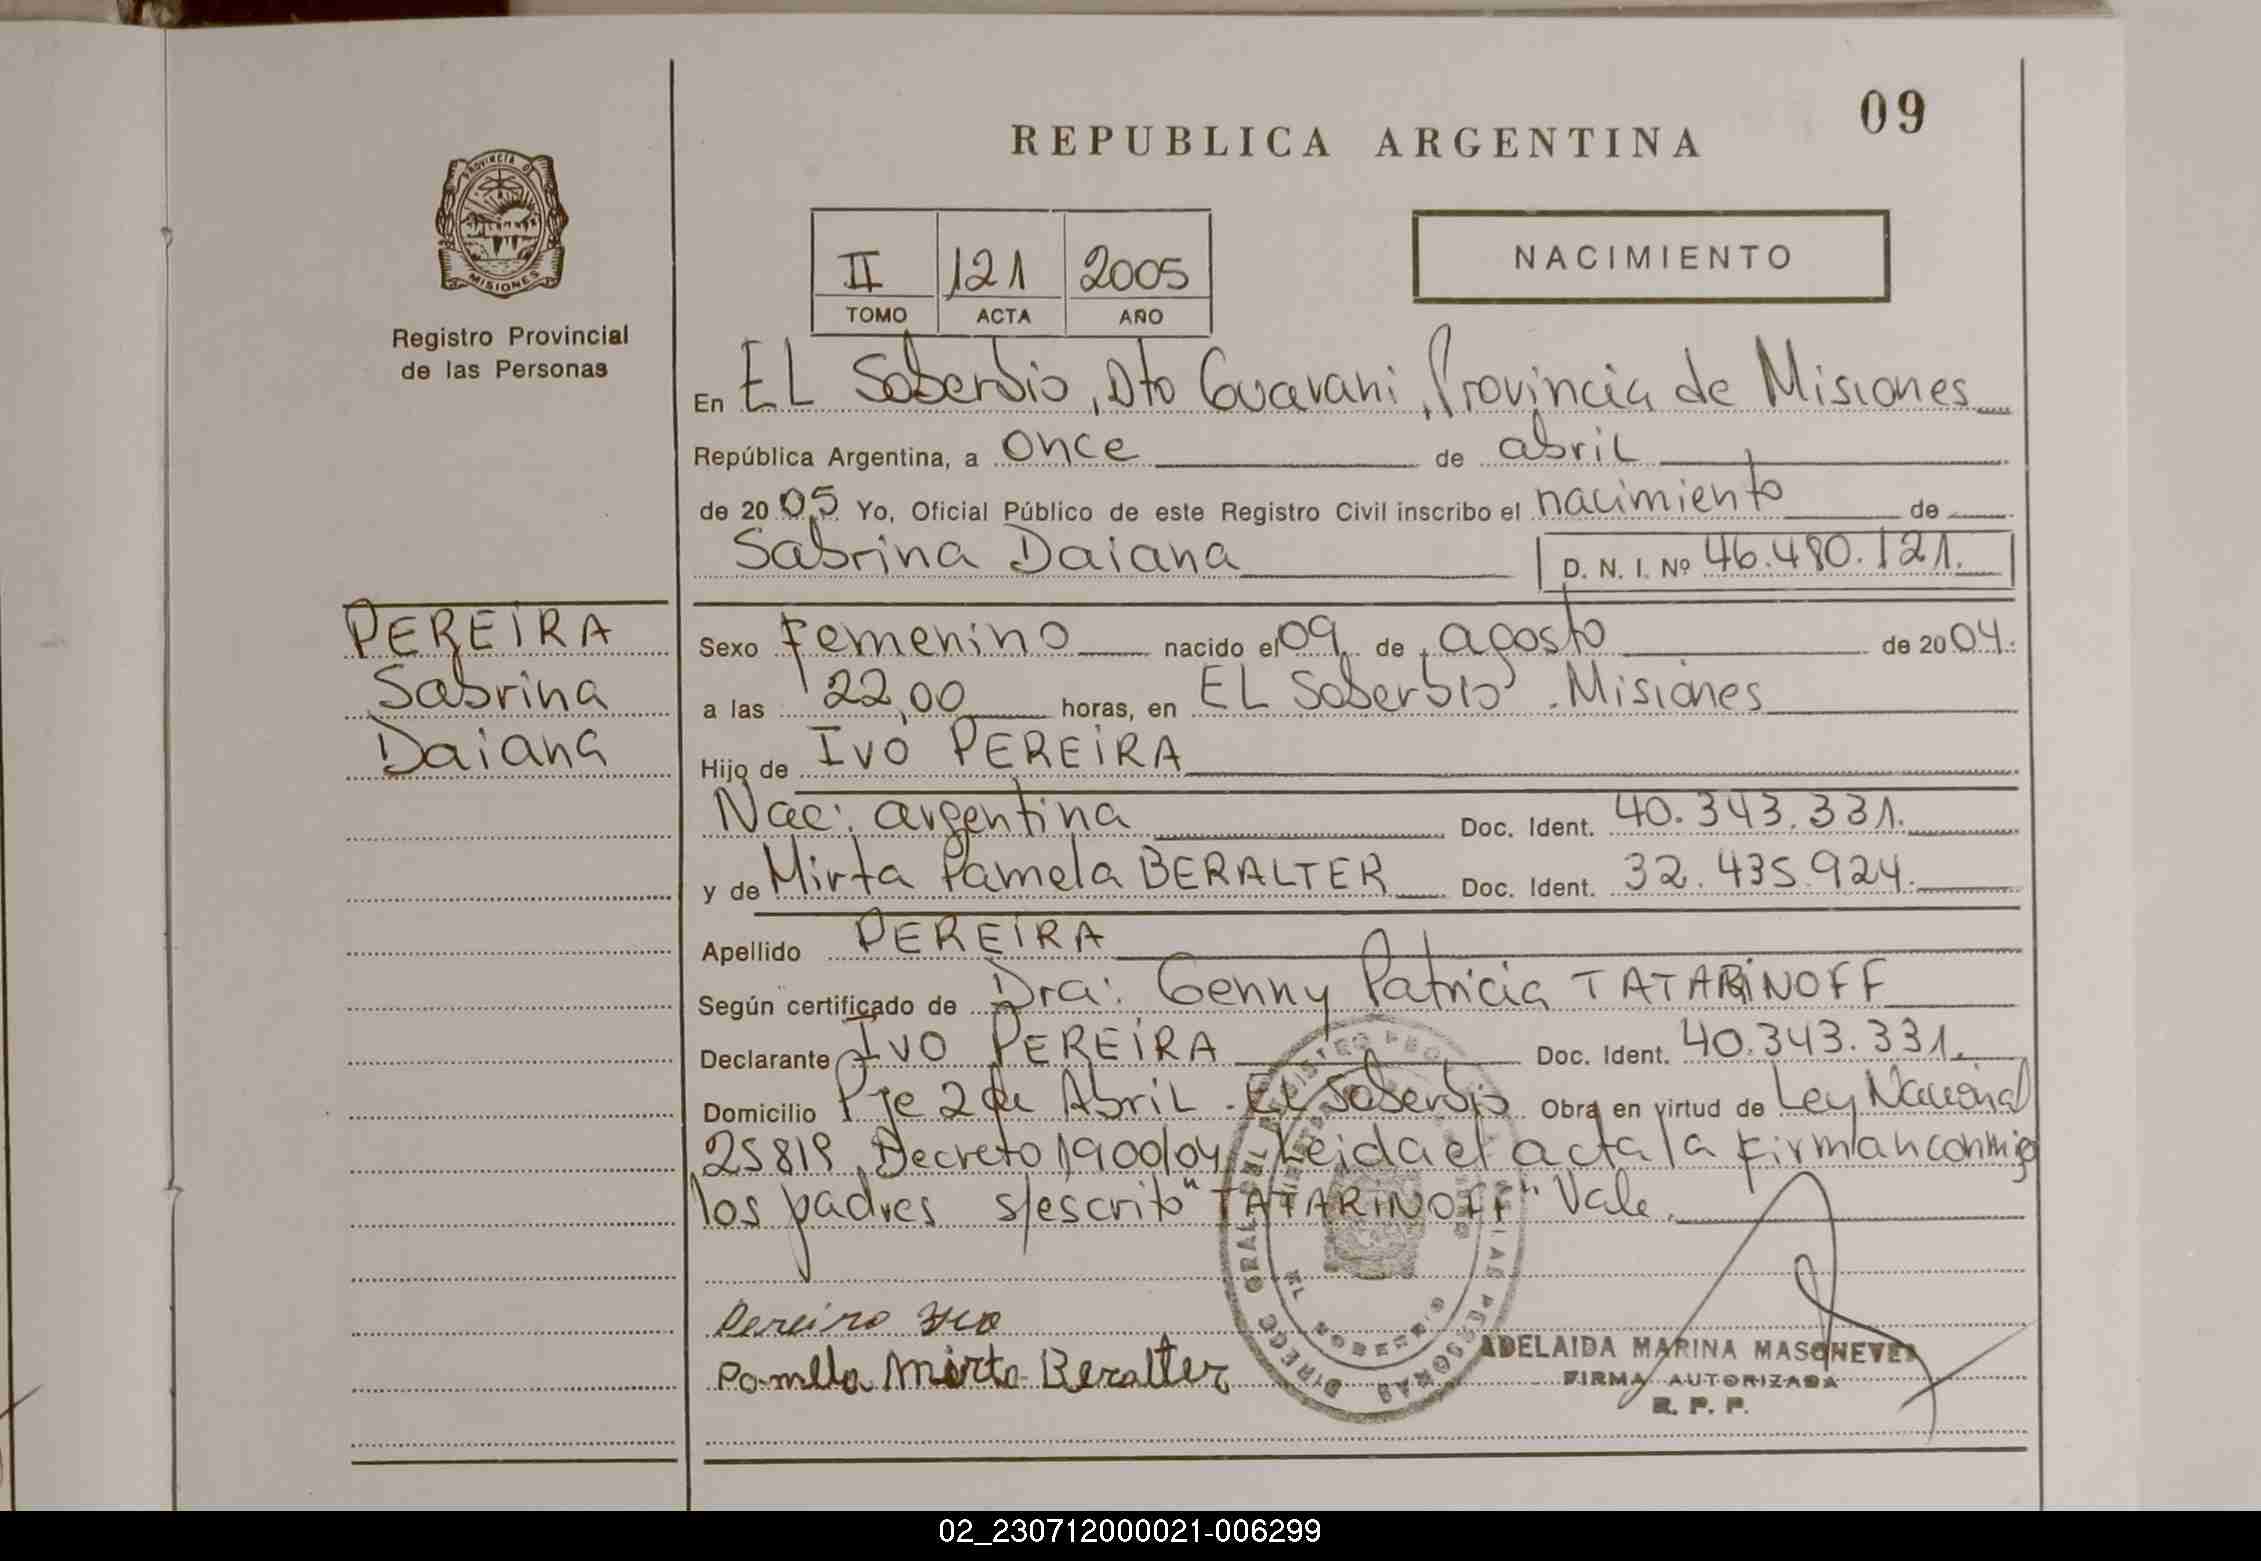 09
REPUBLICA ARGENTINA
PROVINCIA DE
MISIONES
Registro Provincial
de las Personas
NACIMIENTO
II 121 2005
TOMO ACTA AÑO
En EL Soberbio, Dto Guarani, Provincia de Misiones
República Argentina, a once de abril
de 2005 Yo, Oficial Público de este Registro Civil inscribo el nacimiento de
Sabrina Daiana D. N. I. Nº 46.480.121.
PEREIRA
Sabrina
Daiana
Sexo Femenino nacido el 09 de agosto de 2004.
a las 22,00 horas, en EL Soberbio. Misiones
Hijo de Ivo PEREIRA
Nac: argentina Doc. Ident. 40.343.331.
y de Mirta Pamela BERALTER Doc. Ident. 32.435.924.
Apellido PEREIRA
Según certificado de Dra: Genny Patricia TATARINOFF
Declarante Ivo PEREIRA Doc. Ident. 40.343.331.
Domicilio Pje 2 de Abril. El Soberbio Obra en virtud de Ley Nacional
25819, Decreto 1900/04 Leida el acta la firman conmigo
los padres s/escrito "TATARINOFF" Vale.
Pereira Ivo
Pamela Mirta Beralter
ADELAIDA MARINA MASCHEVEI
FIRMA AUTORIZADA
R. P. P.
02_230712000021-006299